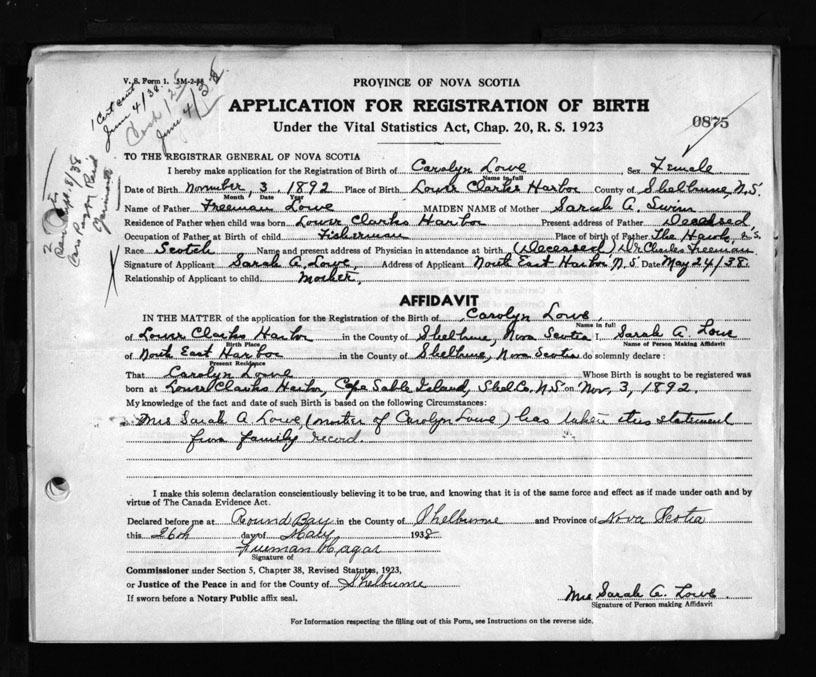 V. S. Form 1. 5M-2-38
PROVINCE OF NOVA SCOTIA
APPLICATION FOR REGISTRATION OF BIRTH
Under the Vital Statistics Act, Chap. 20, R. S. 1923
0875
1 Cert
June 4/38
June 4/38
TO THE REGISTRAR GENERAL OF NOVA SCOTIA
I hereby make application for the Registration of Birth of Carolyn Lowe Sex Female
Name in full
Date of Birth November, 3, 1892 Place of Birth Lower Clarks Harbor County of Shelburne, N.S.
Month / Date Year
Name of Father Freeman Lowe MAIDEN NAME of Mother Sarah A. Swim
Residence of Father when child was born Lower Clarks Harbor Present address of Father Deceased
Occupation of Father at Birth of child Fisherman Place of birth of Father The Hawk, N.S.
Race Scotch Name and present address of Physician in attendance at birth (Deceased) Dr Charles Freeman
Signature of Applicant Sarah A. Lowe, Address of Applicant North East Harbor N.S. Date May 24/38.
Relationship of Applicant to child Mother,
AFFIDAVIT
IN THE MATTER of the application for the Registration of the Birth of Carolyn Lowe,
Name in full
of Lower Clarks Harbor in the County of Shelburne, Nova Scotia I, Sarah A. Lowe
Birth Place Name of Person Making Affidavit
of North East Harbor in the County of Shelburne, Nova Scotia do solemnly declare:
Present Residence
That Carolyn Lowe Whose Birth is sought to be registered was
born at Lower Clarks Harbor, Cape Sable Island, Shel Co. N.S. on Nov, 3, 1892.
My knowledge of the fact and date of such Birth is based on the following Circumstances:
Mrs Sarah A Lowe (mother of Carolyn Lowe) has taken this statement
from family record.
I make this solemn declaration conscientiously believing it to be true, and knowing that it is of the same force and effect as if made under oath and by
virtue of The Canada Evidence Act.
Declared before me at Round Bay in the County of Shelburne and Province of Nova Scotia
this 26th day of May 1938
Freeman Hagar
Signature of
Commissioner under Section 5, Chapter 38, Revised Statutes, 1923,
or Justice of the Peace in and for the County of Shelburne
If sworn before a Notary Public affix seal.
Mrs Sarah A. Lowe
Signature of Person making Affidavit
For Information respecting the filling out of this Form, see Instructions on the reverse side.